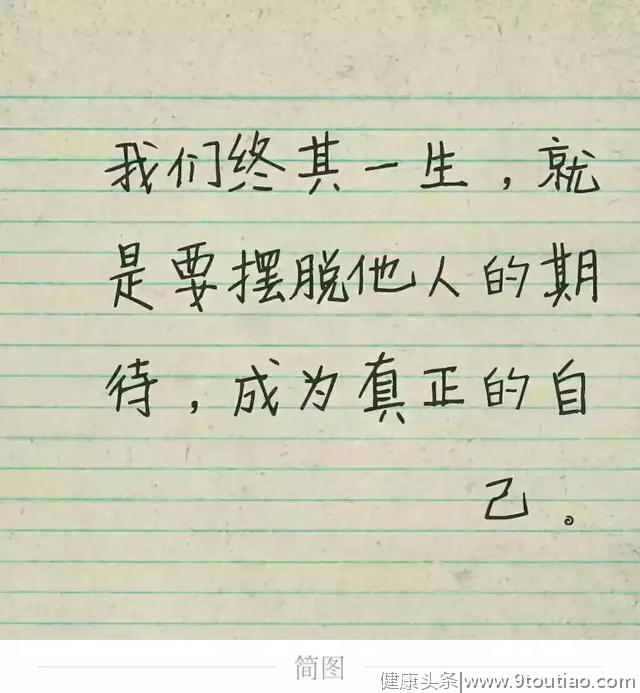 我们终其一生，就
是要摆脱他人的期
待，成为真正的自
己。
简图
健康头条/www.9toutiao.com